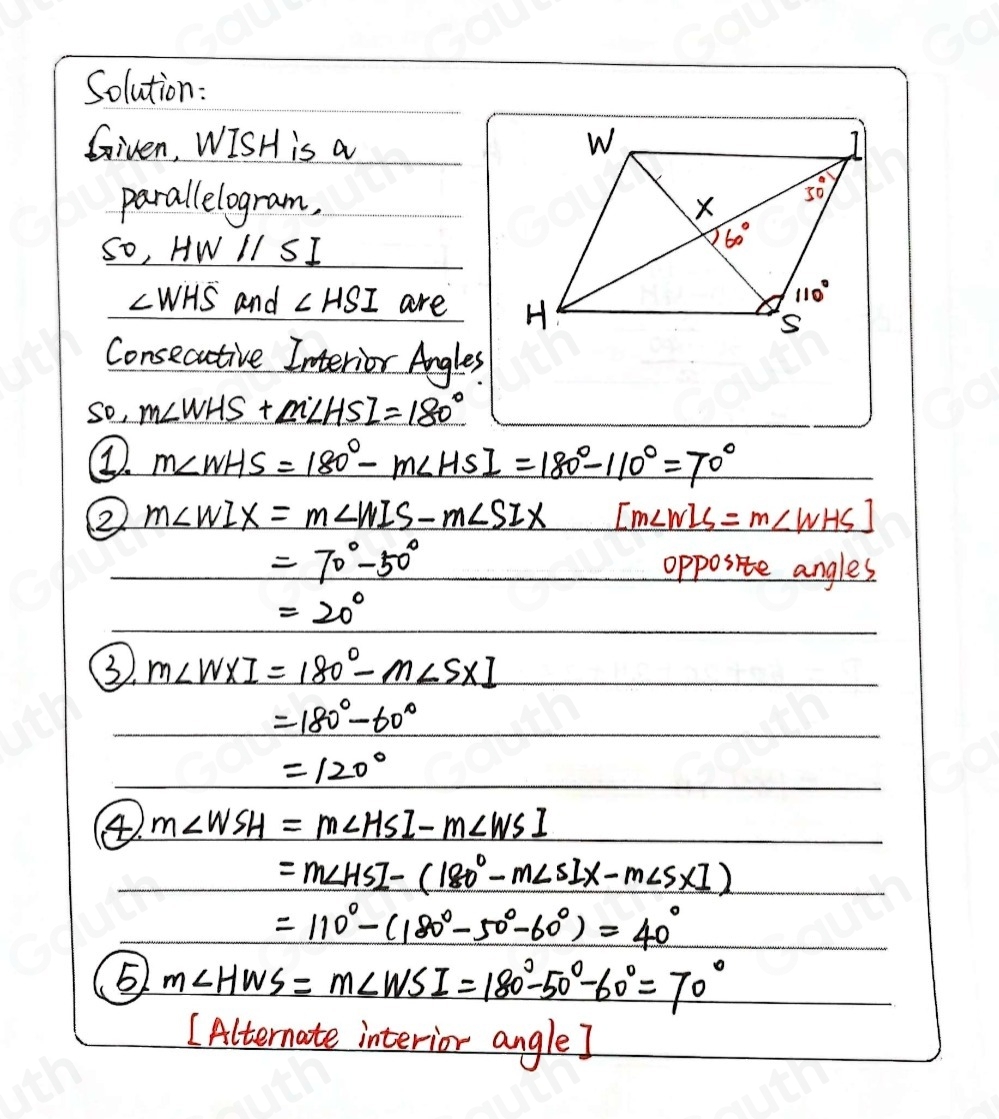 Solution:
Given, WISH is a
parallelogram,
so, HW // SI
∠WHS and ∠HSI are
Consecutive Interior Angles.
so, m∠WHS + m∠HSI = 180°
W
I
50°
X
60°
110°
H
S
①. m∠WHS = 180° - m∠HSI = 180° - 110° = 70°
② m∠WIX = m∠WIS - m∠SIX [m∠WIS = m∠WHS]
= 70° - 50° opposite angles
= 20°
③. m∠WXI = 180° - m∠SXI
= 180° - 60°
= 120°
④. m∠WSH = m∠HSI - m∠WSI
= m∠HSI - (180° - m∠SIX - m∠SXI)
= 110° - (180° - 50° - 60°) = 40°
⑤. m∠HWS = m∠WSI = 180° - 50° - 60° = 70°
[Alternate interior angle]